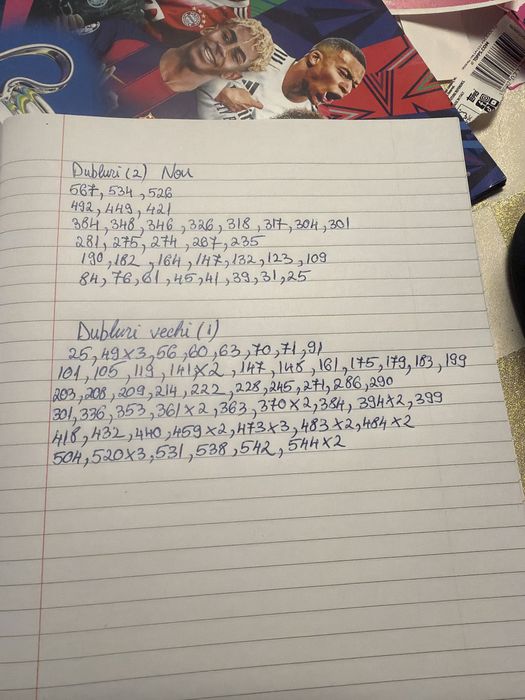 Dubluri (2) Nou
567, 534, 526
492, 449, 421
384, 348, 346, 326, 318, 317, 304, 301
281, 275, 274, 267, 235
190, 182, 164, 147, 132, 123, 109
84, 76, 61, 45, 41, 39, 31, 25
Dubluri vechi (1)
25, 49x3, 56, 60, 63, 70, 71, 91
101, 105, 119, 141x2, 147, 148, 161, 175, 179, 183, 199
203, 208, 209, 214, 222, 228, 245, 271, 286, 290
301, 336, 353, 361x2, 363, 370x2, 384, 394x2, 399
418, 432, 440, 459x2, 473x3, 483x2, 484x2
504, 520x3, 531, 538, 542, 544x2